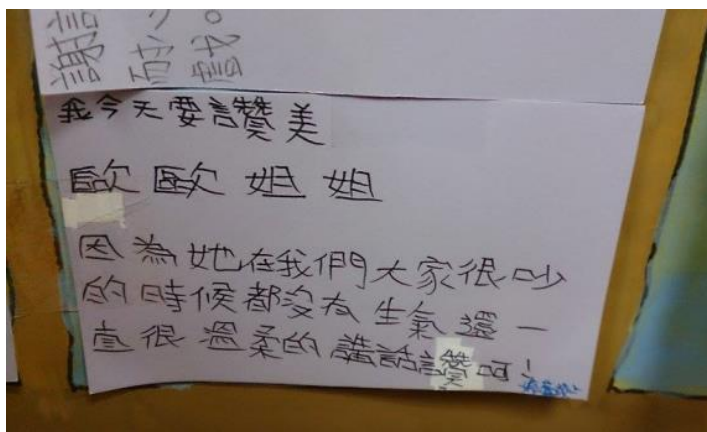 我今天要讚美
歐歐姐姐
因為她在我們大家很吵
的時候都沒有生氣還一
直很溫柔的講話讚啊!